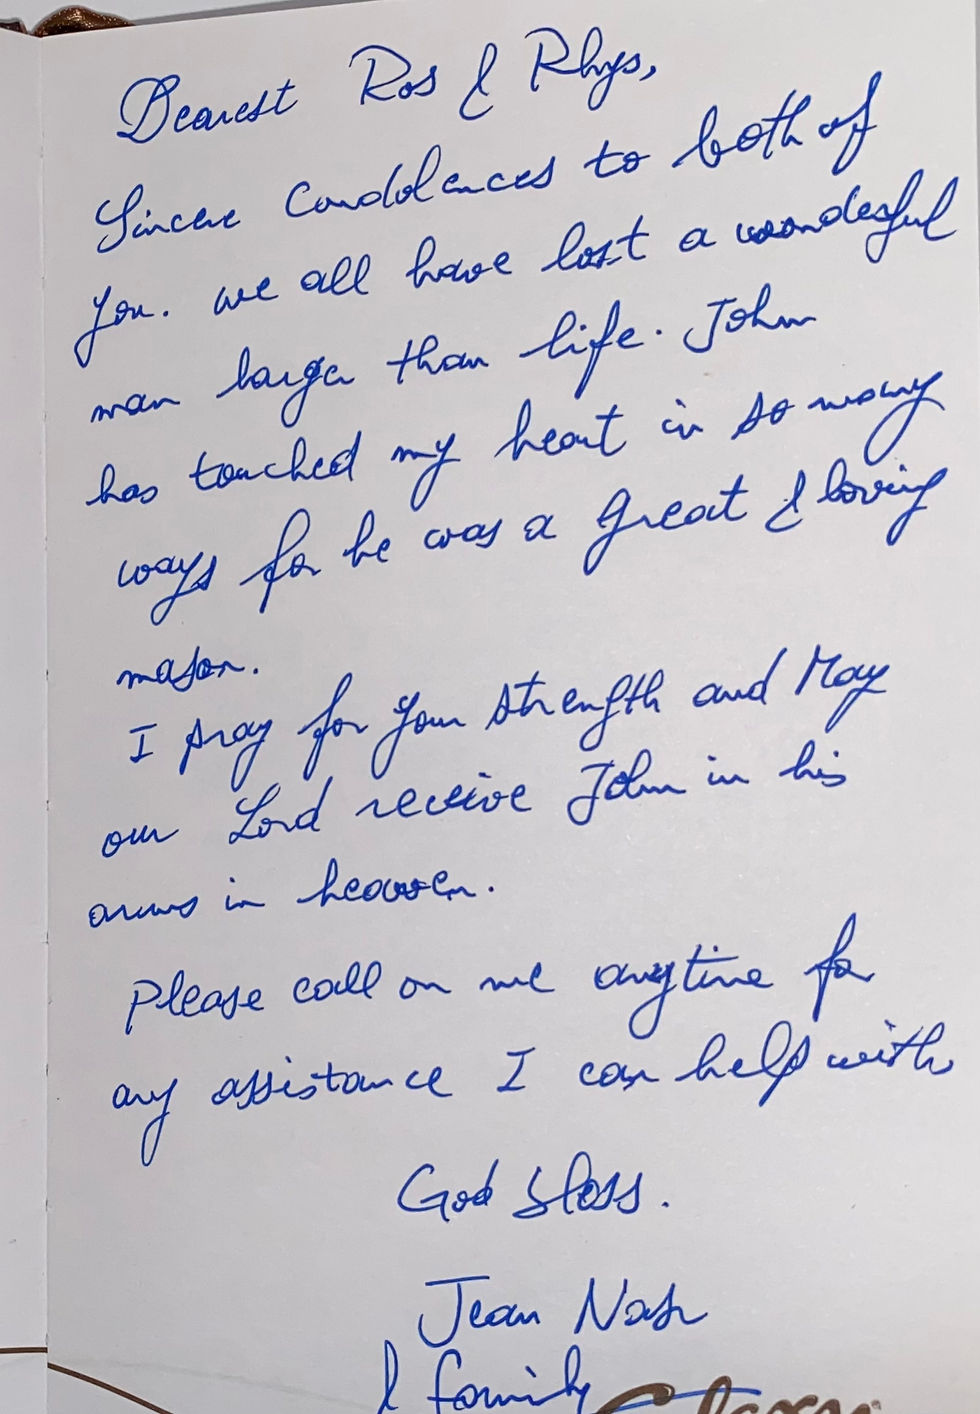 Dearest Ros & Rhys,
Sincere Condolences to both of
you. we all have lost a wonderful
man larger than life. John
has touched my heart in so many
ways for he was a great & loving
mason.
I pray for your strength and May
our Lord receive John in his
arms in heaven.
Please call on me anytime for
any assistance I can help with
God bless.
Jean Nash
& family